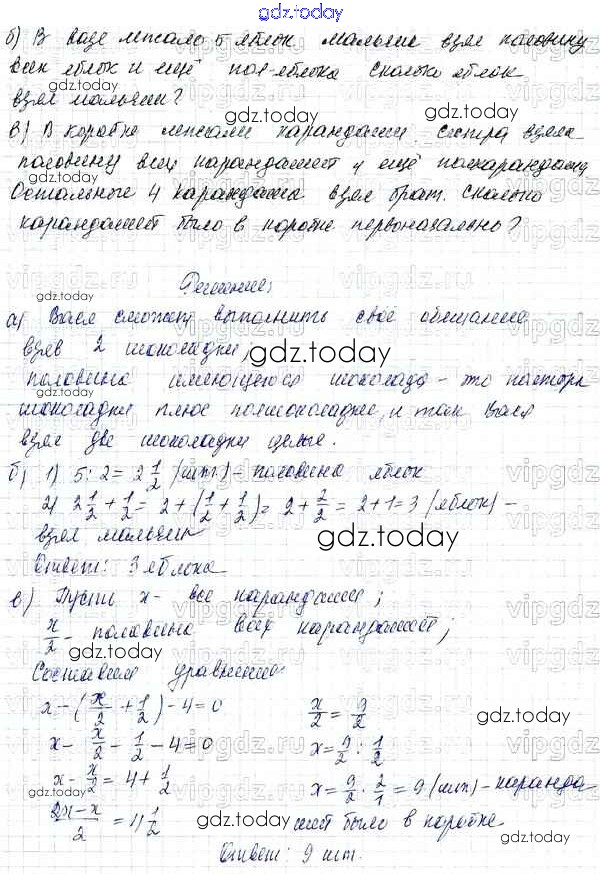 gdz.today
б) В вазе лежало 5 яблок мальчик взял половину
всех яблок и ещё пол-яблока сколько яблок
взял мальчик?
gdz.today
gdz.today
в) В коробке лежали карандаши. Сестра взяла
половину всех карандашей и ещё полкарандаша
Остальные 4 карандаша взял брат. Сколько
карандашей было в коробке первоначально?
Решение:
gdz.today
gdz.today
а) Вася сможет выполнить своё обещание
взяв 2 шоколадки,
gdz.today
половина имеющегося шоколада - это
шоколадки плюс полшоколадки, и так Вася
gdz.today
взял две шоколадки целые.
б) 1) 5 : 2 = 2 1/2 (шт.) - половина яблок
2) 2 1/2 + 1/2 = 2 + (1/2 + 1/2) = 2 + 2/2 = 2 + 1 = 3 (яблок) -
взял мальчик
gdz.today
Ответ: 3 яблока
в) Пусть x - все карандаши;
x/2 - половина всех карандашей;
Составим уравнение:
x - (x/2 + 1/2) - 4 = 0
x - x/2 - 1/2 - 4 = 0
x - x/2 = 4 + 1/2
2x - x/2 = 4 1/2
x/2 = 9/2
gdz.today
x = 9/2 : 1/2
x = 9/2 · 2/1 = 9 (шт) - каранда
шей было в коробке
gdz.today
gdz.today
Ответ: 9 шт.